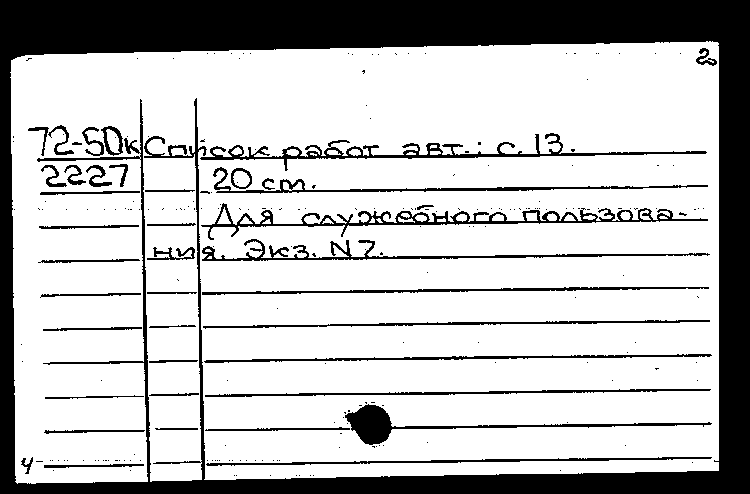 2
72-50к Список работ авт.: с. 13.
2227 20 cm.
Для служебного пользова-
ния. Экз. N 7.
4